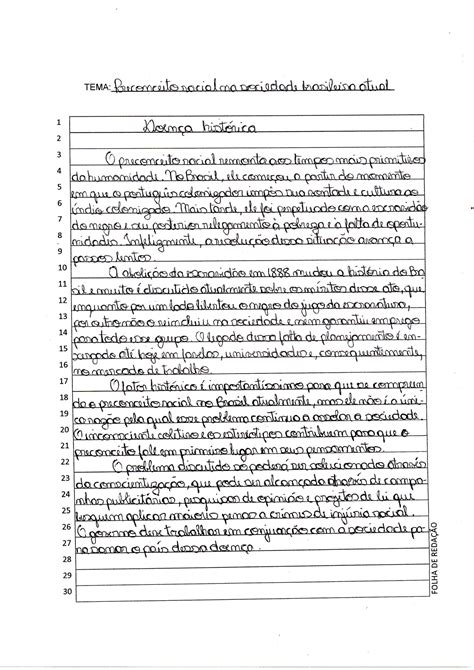 TEMA: Preconceito racial na sociedade brasileira atual
1 Doença histórica
2
3 O preconceito racial remonta aos tempos mais primitivos
4 da humanidade. No Brasil, ele começou a partir do momento
5 em que o português colonizador impôs sua vontade e cultura ao
6 índio colonizado. Mais tarde, ele foi perpetuado com a escravidão
7 do negro e seu posterior relegamento à pobreza e à falta de oportu-
8 nidades. Infelizmente, a resolução dessa situação avança a
9 passos lentos.
10 A abolição da escravidão em 1888 mudou a história do Bra
11 sil e muito é discutido atualmente sobre os méritos desse ato, que,
12 enquanto por um lado libertou o negro do jugo da escravatura,
13 por outro não o reincluiu na sociedade e nem garantiu emprego
14 para todo esse grupo. O legado dessa falta de planejamento é en-
15 xergado até hoje em favelas, universidades e, consequentemente,
16 no mercado de trabalho.
17 O fator histórico é importantíssimo para que se compreen
18 da o preconceito racial no Brasil atualmente, mas ele não é a úni-
19 ca razão pela qual esse problema continua a assolar a sociedade.
20 O inconsciente coletivo e os estereótipos contribuem para que o
21 preconceito fale em primeiro lugar em seus pensamentos.
22 O problema discutido só poderá ser solucionado através
23 da conscientização, que pode ser alcançada através de campa-
24 nhas publicitárias, pesquisas de opinião e projetos de lei que
25 busquem aplicar maiores penas a crimes de injúria racial.
26 O governo deve trabalhar em conjunção com a sociedade pa
27 ra sanar o país dessa doença.
28
29
30
FOLHA DE REDAÇÃO